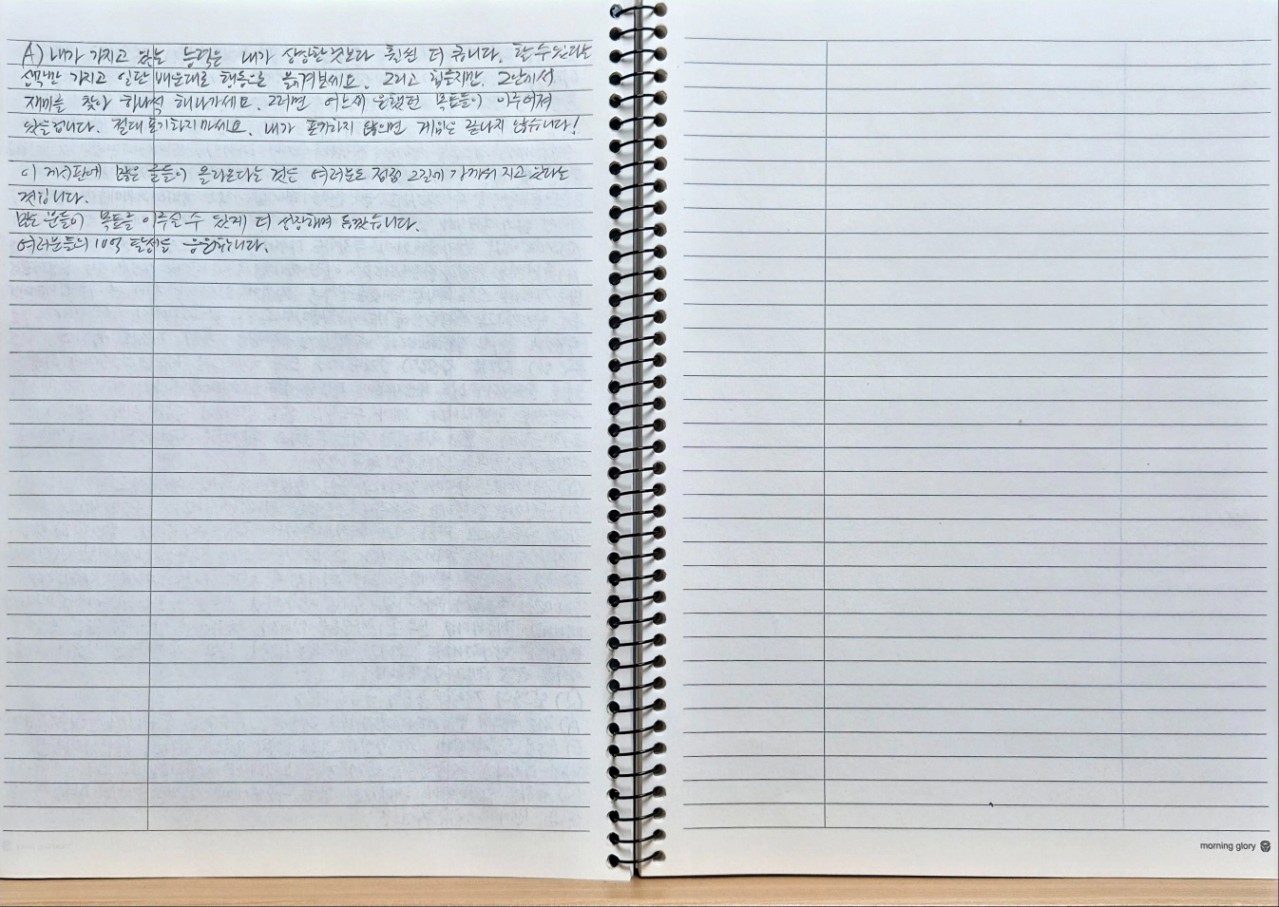 A) 내가 가지고 있는 능력은 내가 상상한것보다 훨씬 더 큽니다. 할수있다는
생각만 가지고 일단 배운대로 행동으로 옮겨보세요. 그리고 힘들지만, 그안에서
재미를 찾아 하나씩 해나가세요. 그러면 어느새 원했던 목표들이 이루어져
있을겁니다. 절대 포기하지마세요. 내가 포기하지 않으면 게임은 끝나지 않습니다!
이 게시판에 많은 글들이 올라온다는 것은 여러분도 점점 그길에 가까워 지고 있다는
것입니다.
많은 분들이 목표를 이루실 수 있게 더 성장하며 돕겠습니다.
여러분들의 10억 달성을 응원합니다.
morning glory